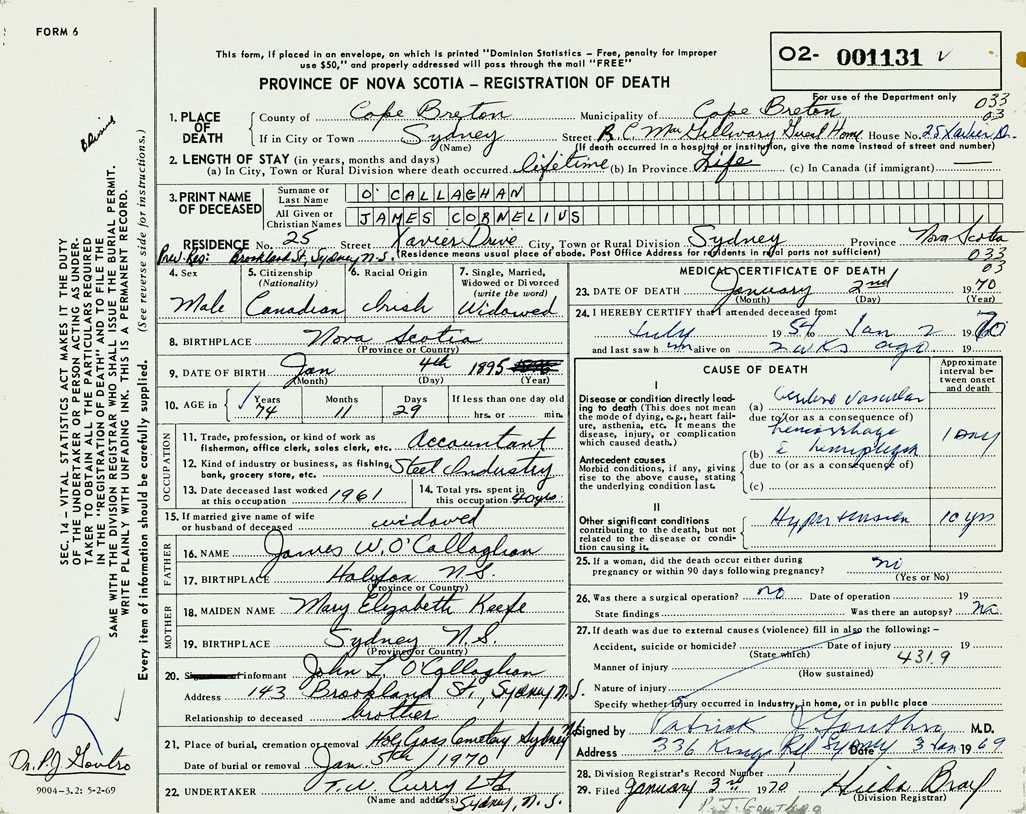 FORM 6
This form, if placed in an envelope, on which is printed "Dominion Statistics – Free, penalty for improper
use $50," and properly addressed will pass through the mail "FREE"
PROVINCE OF NOVA SCOTIA – REGISTRATION OF DEATH
02- 001131
For use of the Department only
033
03
1. PLACE OF DEATH
County of Cape Breton Municipality of Cape Breton
If in City or Town Sydney Street R.C. Guest Home House No. 25 Xavier Dr.
(Name) (If death occurred in a hospital or institution, give the name instead of street and number)
2. LENGTH OF STAY (in years, months and days)
(a) In City, Town or Rural Division where death occurred lifetime (b) In Province Life (c) In Canada (if immigrant) —
3. PRINT NAME OF DECEASED
Surname or Last Name O'CALLAGHAN
All Given or Christian Names JAMES CORNELIUS
RESIDENCE No. 25 Street Xavier Drive City, Town or Rural Division Sydney Province Nova Scotia
Prev. Res: Brookland St, Sydney N.S. (Residence means usual place of abode. Post Office Address for residents in rural parts not sufficient) 033
03
4. Sex Male
5. Citizenship (Nationality) Canadian
6. Racial Origin Irish
7. Single, Married, Widowed or Divorced (write the word) Widowed
8. BIRTHPLACE Nova Scotia
(Province or Country)
9. DATE OF BIRTH Jan 4th 1895
(Month) (Day) (Year)
10. AGE in Years 74 Months 11 Days 29 If less than one day old
hrs. or min.
OCCUPATION
11. Trade, profession, or kind of work as fisherman, office clerk, sales clerk, etc. Accountant
12. Kind of industry or business, as fishing, bank, grocery store, etc. Steel Industry
13. Date deceased last worked at this occupation 1961
14. Total yrs. spent in this occupation 40 yrs.
15. If married give name of wife or husband of deceased widowed
FATHER
16. NAME James W. O'Callaghan
17. BIRTHPLACE Halifax N.S.
(Province or Country)
MOTHER
18. MAIDEN NAME Mary Elizabeth Keefe
19. BIRTHPLACE Sydney N.S.
(Province or Country)
20. informant John L. O'Callaghan
Address 143 Brookland St., Sydney N.S.
Relationship to deceased brother
21. Place of burial, cremation or removal Holy Cross Cemetery Sydney N.S.
Date of burial or removal Jan. 5th / 1970
22. UNDERTAKER T.W. Curry Ltd
(Name and address) Sydney, N.S.
MEDICAL CERTIFICATE OF DEATH
23. DATE OF DEATH January 2nd 1970
(Month) (Day) (Year)
24. I HEREBY CERTIFY that I attended deceased from:
July 1954 to Jan 2 1970
and last saw him alive on 2 wks ago 19
CAUSE OF DEATH
Approximate interval between onset and death
I
Disease or condition directly leading to death (This does not mean the mode of dying, e.g., heart failure, asthenia, etc. It means the disease, injury, or complication which caused death.)
(a) Cerebro vascular
due to (or as a consequence of)
hemorrhage
Antecedent causes
Morbid conditions, if any, giving rise to the above cause, stating the underlying condition last.
(b) c hemiplegia 1 Day
due to (or as a consequence of)
(c)
II
Other significant conditions contributing to the death, but not related to the disease or condition causing it.
Hypertension 10 yrs
25. If a woman, did the death occur either during pregnancy or within 90 days following pregnancy?
(Yes or No)
26. Was there a surgical operation? no Date of operation 19
State findings Was there an autopsy? no
27. If death was due to external causes (violence) fill in also the following: –
Accident, suicide or homicide? Date of injury 19
(State which) 431.9
Manner of injury
(How sustained)
Nature of injury
Specify whether injury occurred in Industry, in home, or in public place
Signed by Patrick J Gouthro M.D.
Address 336 Kings Rd Sydney Date 3 Jan 1969
28. Division Registrar's Record Number 1
29. Filed January 3rd 1970 Hilda Bray
(Division Registrar)
P. J. Gouthro
SEC. 14 – VITAL STATISTICS ACT MAKES IT THE DUTY
OF THE UNDERTAKER OR PERSON ACTING AS UNDER-
TAKER TO OBTAIN ALL THE PARTICULARS REQUIRED
IN THE "REGISTRATION OF DEATH" AND TO FILE THE
SAME WITH THE DIVISION REGISTRAR WHO SHALL ISSUE THE BURIAL PERMIT.
WRITE PLAINLY WITH UNFADING INK. THIS IS A PERMANENT RECORD.
Every item of information should be carefully supplied. (See reverse side for instructions.)
Dr. P.J. Goutro
9004–3.2: 5-2-69